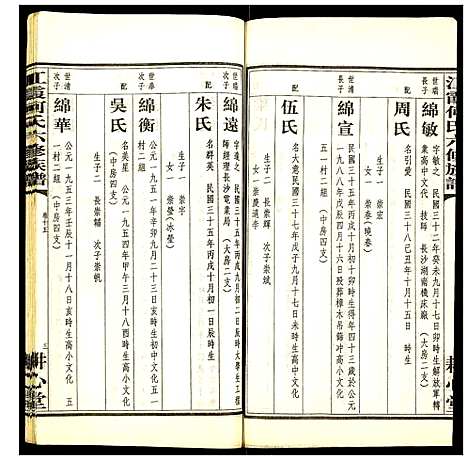 江霞何氏六修族譜
耕心堂
世瑞
長子
綿敏
字敏之 民國三十二年癸未九月十七日 時生解放軍轉
業高中文化 技師 長沙湖南機床廠 (大房二支)
配
周氏
名引愛 民國三十八己丑年十月十五日 時生
生子一 崇宏
女一 崇春(曉春)
世浦
長子
綿宣
民國三十五年丙戌十月初十卯時生得年四十三歲於公元
一九八八年戊辰四月十六日歿葬樟木吊餙冲高小文化
一村二組(中房四支)
配
伍氏
名大意民國三十七年戊子九月十七日 時生高小文化
生子二 長崇輝 次子崇斌
女一 崇慶適李
世瑞
次子
綿遠
字遠之 民國三十五年丙戌九月初九日 時生大學生
師經理長沙電業局 (大房二支)
配
朱氏
名群英 民國三十五年丙戌十月初一日 時生
生子一 崇宇
女一 崇瑩(冰瑩)
世華
次子
綿衡
公元一九五一年辛卯九月二十日寅時生高中文化 一
村二組 (中房四支)
配
吳氏
名美星 公元一九五四年甲午三月十八酉時生高小文化
生子二 長崇輔 次子崇帆
世浦
次子
綿華
公元一九五三年壬辰十一月十八日亥時生高小文化 五
一村二組(中房四支)
江霞何氏六修族譜
卷十五
三
耕心堂